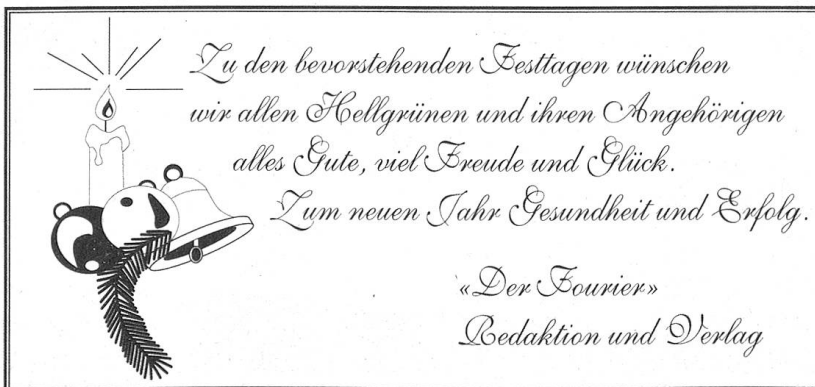 Zu den bevorstehenden Festtagen wünschen
wir allen Hellgrünen und ihren Angehörigen
alles Gute, viel Freude und Glück.
Zum neuen Jahr Gesundheit und Erfolg.
«Der Fourier»
Redaktion und Verlag